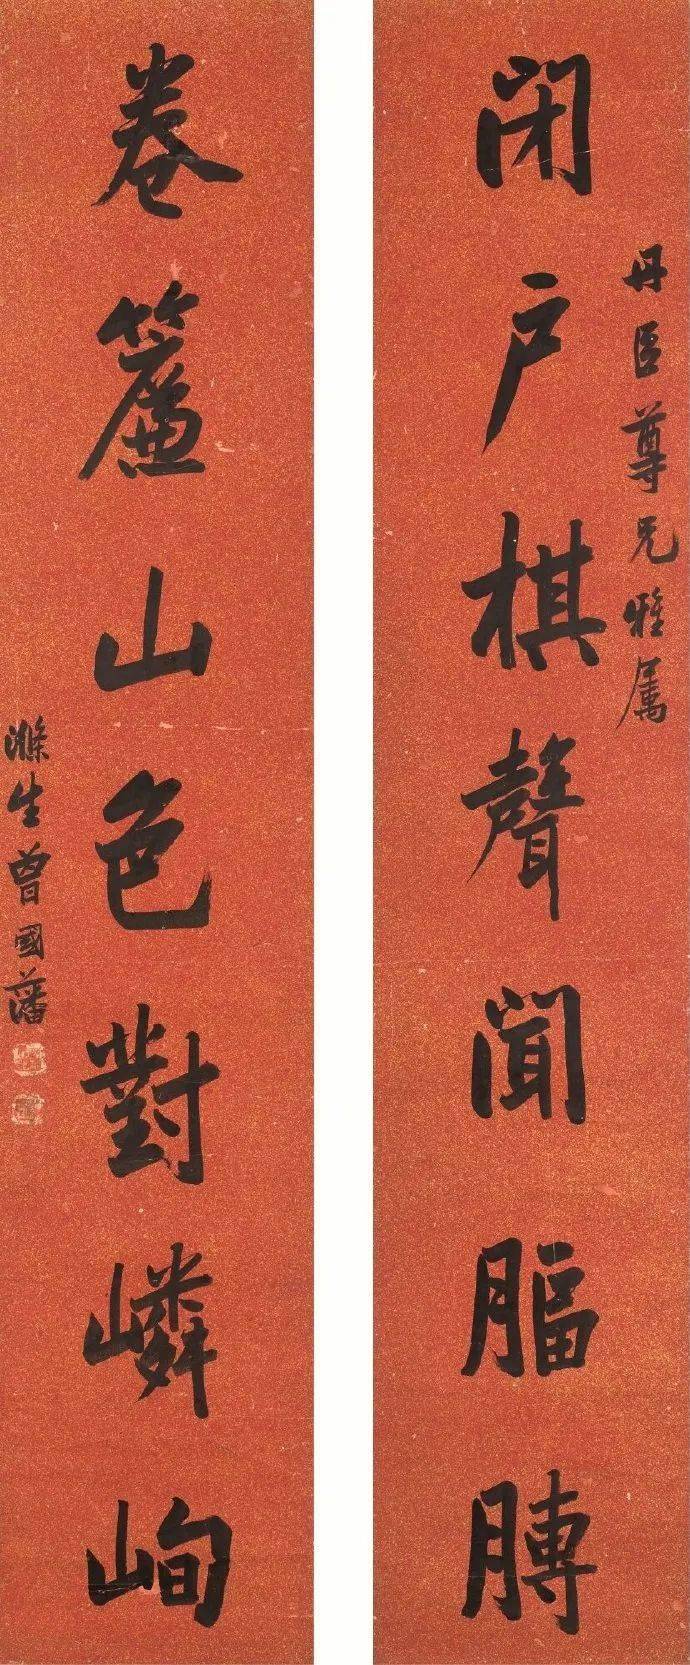 丹臣尊兄雅属
闭户棋聲闻膈膊
卷簾山色對嶙峋
滌生曾國藩